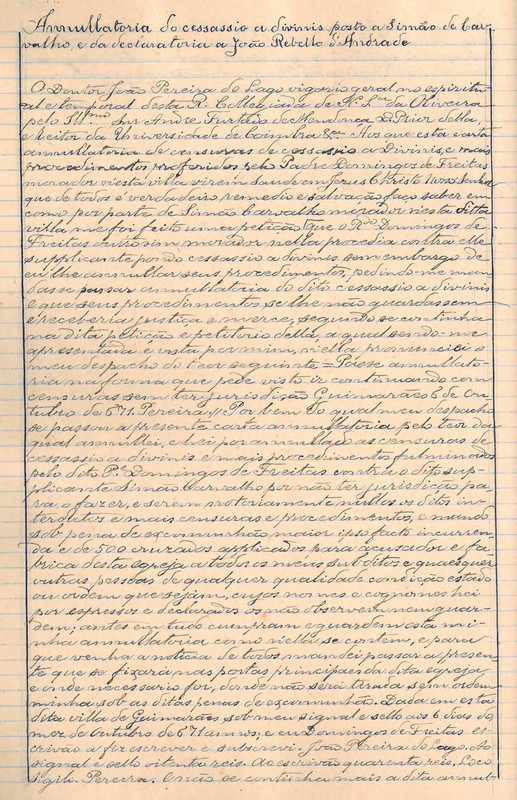 Annullatoria do cessassio a divinis posto a Simão de Car-
valho, e da declaratoria a João Rebello d'Andrade
O Doutor João Pereira do Lago vigario geral no espiritu-
al e temporal desta R. Collegiada de N. Sra. da Oliveira
pelo Illmo. Snr. André Furtado de Mendonça D. Prior della,
e Reitor da Universidade de Coimbra &ca. Aos que esta carta
annullatoria de censuras de cessassio a Divinis, e mais
procedimentos proferidos pelo Padre Domingos de Freitas
morador n'esta villa virem saude em Jesus Christo Nosso Senhor
que de todos é verdadeiro remedio e salvação faço saber em
como por parte de Simão Carvalho morador n'esta dita
villa me foi feito uma petição que o Rdo. Domingos de
Freitas outrosim morador nella procedia contra elle
supplicante pondo cessassio a divinis sem embargo de
eu lhe annullar seus procedimentos, pedindo-me man-
dasse passar annullatoria do dito cessassio a divinis
e que seus procedimentos se lhe não guardassem
e receberia justiça e merce, segundo se continha
na dita petição e petitorio della, a qual sendo-me
apresentada e vista por mim, n'ella pronunciei o
meu despacho do teor seguinte = Passe annullato-
ria na forma que pede visto ir continuando com
censuras sem ter jurisdição Guimarães 6 de Ou-
tubro de 671. Pereira // Por bem do qual meu despacho
se passou a presente carta annullatoria pelo teor da
qual annullei, e hei por annullado as censuras de
cessassio a divinis e mais procedimento fulminados
pelo dito Pe. Domingos de Freitas contra o dito sup-
plicante Simão Carvalho por não ter jurisdição pa-
ra o fazer, e serem notoriamente nullos os ditos in-
terdictos e mais censuras e procedimentos, e mando
sob pena de excommunhão maior ipso facto incurren-
da e de 500 cruzados applicados para accusador e fa-
brica desta egreja a todos os meus subditos e quaesquer
outras pessoas de qualquer qualidade condição estado
ou ordem que sejam, cujos nomes e cognomes hei
por expressos e declarados os não observem nem guar-
dem; antes em tudo cumpram e guardem esta mi-
nha annullatoria como n'ella se contem, e para
que venha a noticia de todos, mandei passar a presen-
te que se fixará nas portas principaes da dita egreja,
e onde necessario for, donde não será tirada sem ordem
minha, sob as ditas penas de excommunhão. Dada em esta
dita villa de Guimarães, sob meu signal e sello aos 6 dias do
mez de Outubro de 671 annos; e eu Domingos de Freitas es-
crivão a fiz escrever e subscrevi. João Pereira do Lago. Ao
signal e sello oitenta reis. Ao escrivão quarenta reis. Loco
sigili. Pereira. E não se continha mais a dita annul-